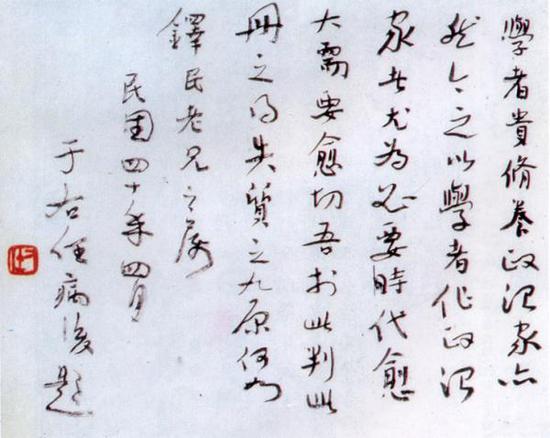 學者貴脩養政治家亦
然今之以學者作政治
家者尤為必要時代愈
大需要愈切吾於此判此
冊之得失質之九原何如
鐸民老兄之屬
民國四十年四月
于右任病後題